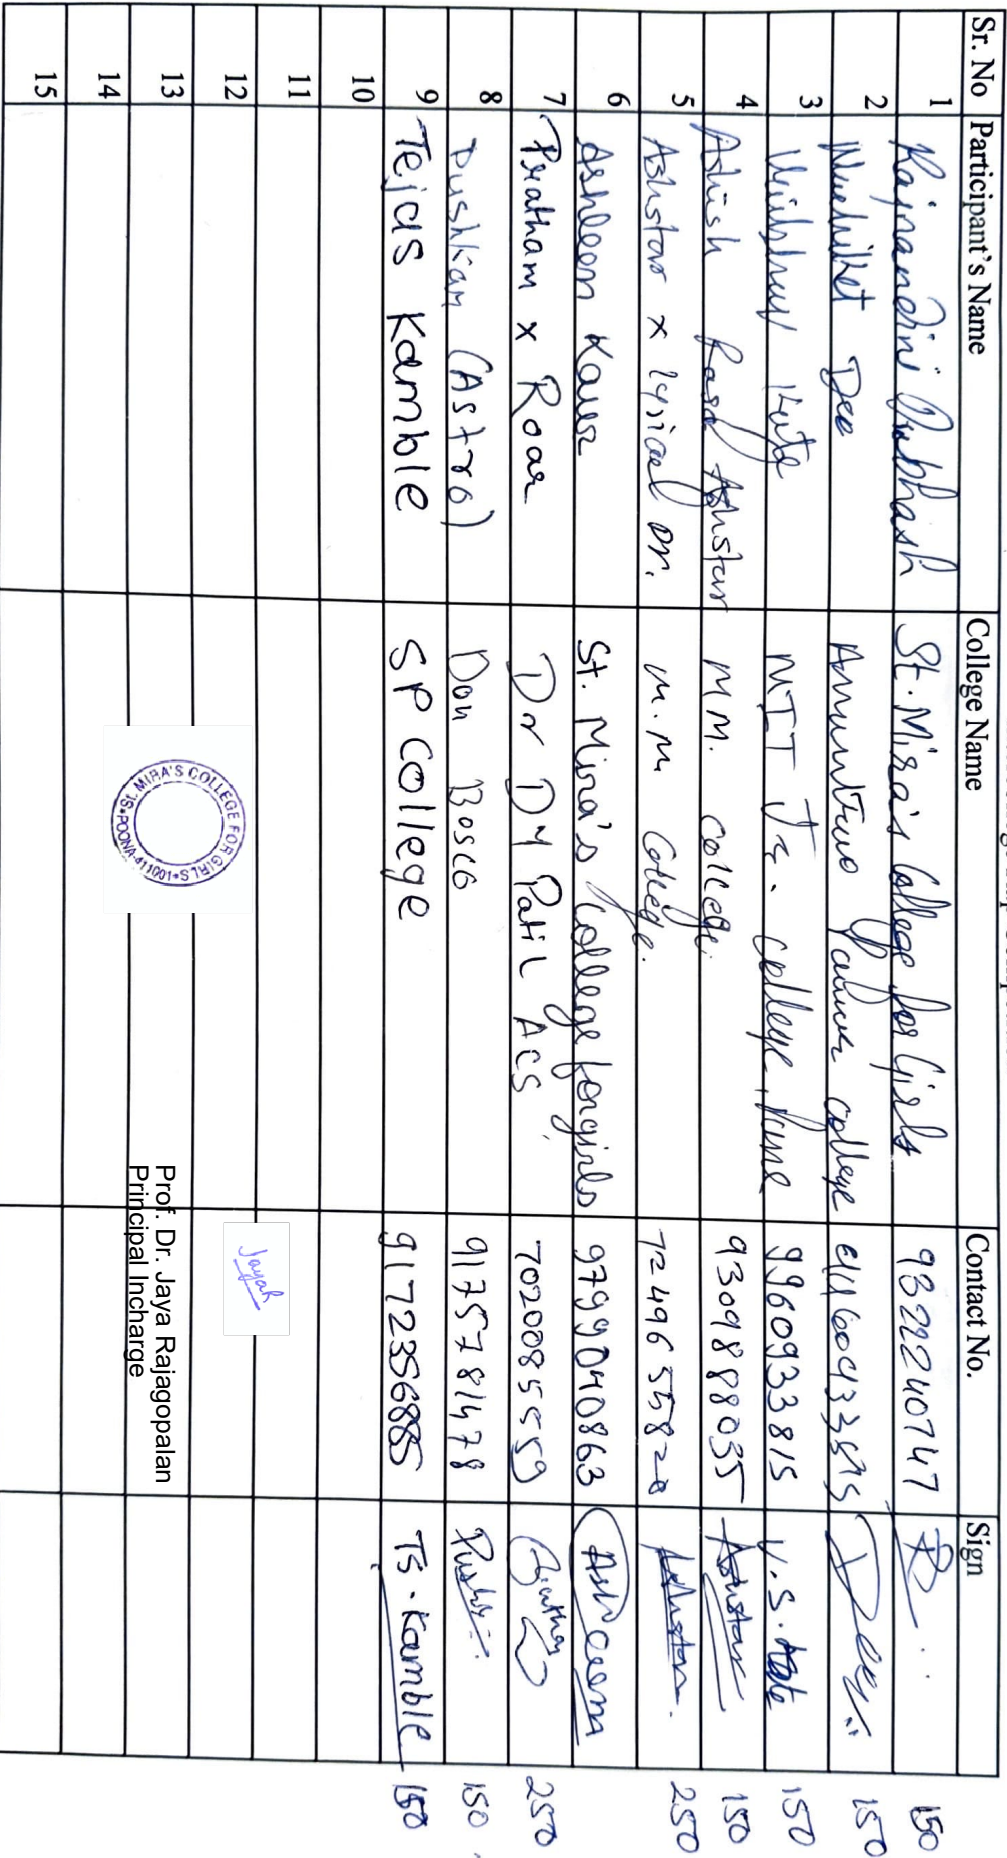 Sr. No Participant's Name College Name Contact No. Sign
1 Rajnandini Subhash St. Mira's College for Girls 9322240747 150
2 Deo Annantrao Pawar college 150
3 Kute MIT Jr. College, Pune 9960933815 V.S. Kute 150
4 Ashish Ashstar M.M. College 9309888035 Ashstar 150
5 Ashstar x lyrical Dr. M.M College. 7249655820 Ashstar. 250
6 Ashleen Kaur St. Mira's College for girls 9799040863 Ashleen
7 Pratham x Roar Dr DY Patil ACS 7020085559 Pratham 250
8 Pushkar (Astro) Don Bosco 9175781478 150
9 Tejas Kamble SP College 9172356885 TS. Kamble 150
10
11
12 Jayah
13 ST. MIRA'S COLLEGE FOR GIRLS * POONA-411001 * Prof. Dr. Jaya Rajagopalan
Principal Incharge
14
15